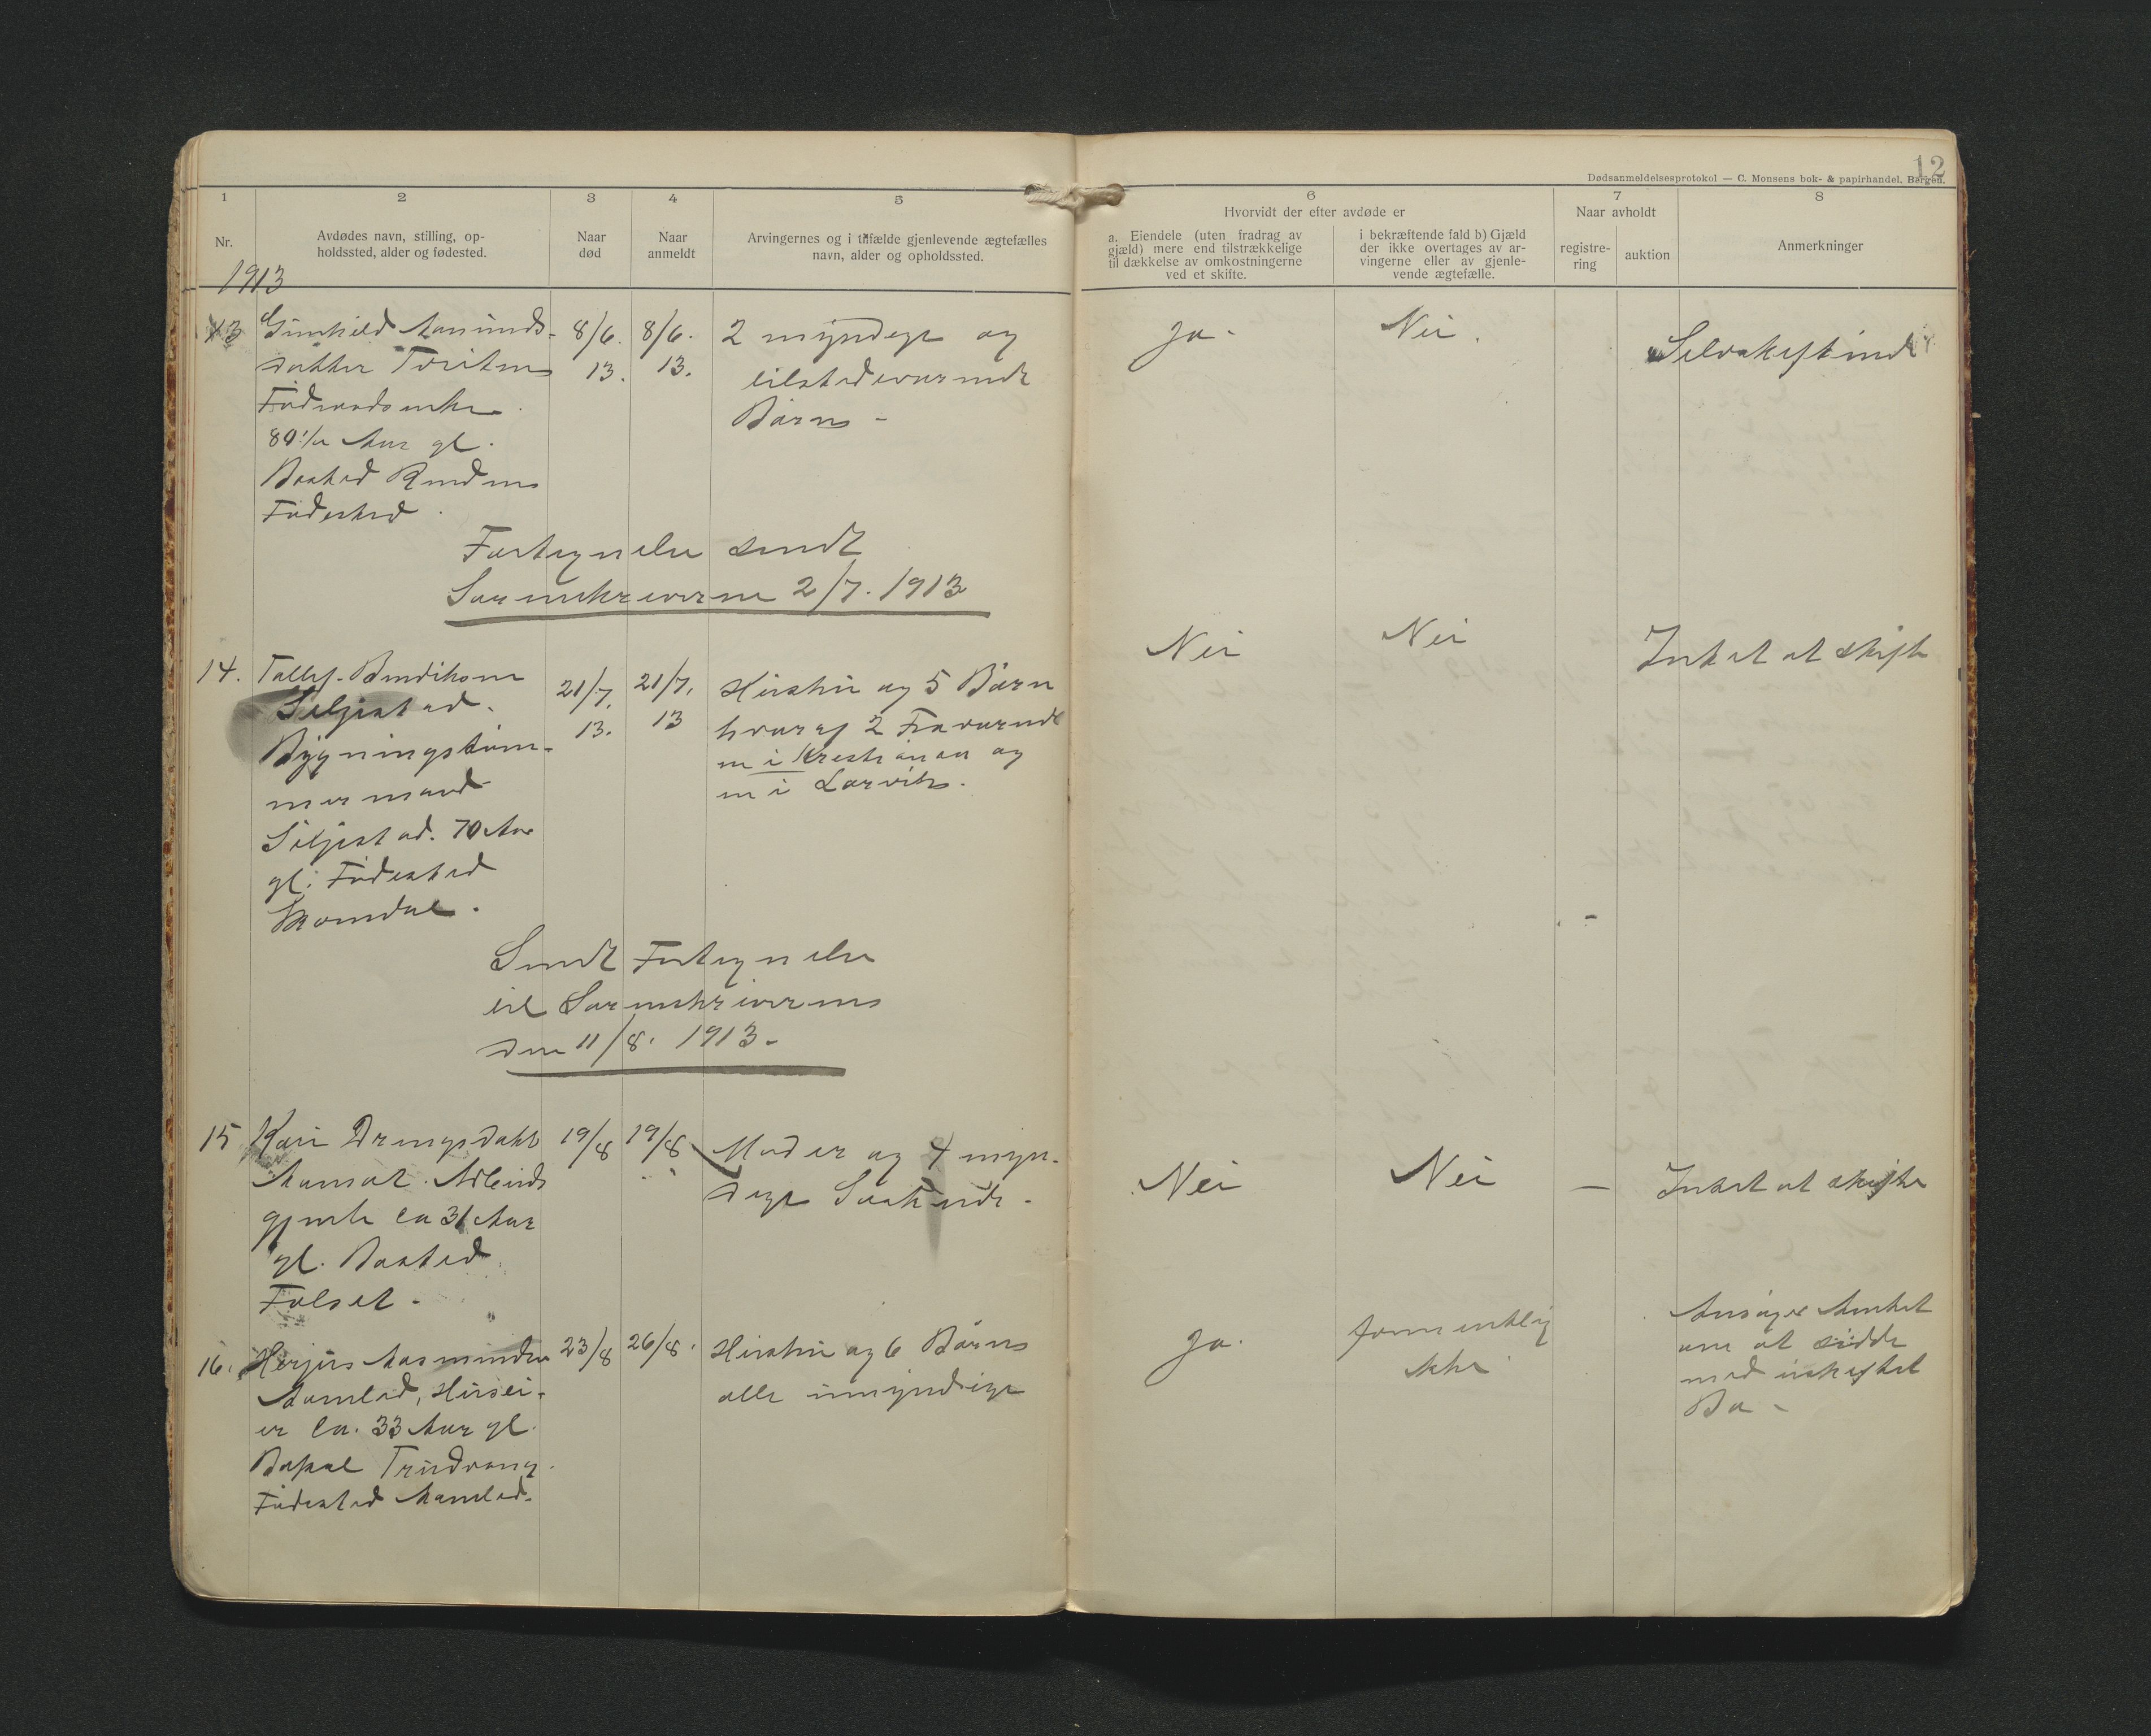 12
Dødsanmeldelsesprotokol — C. Monsens bok- & papirhandel, Bergen.
1
2
3
4
5
6
7
8
Nr.
Avdødes navn, stilling, op-
holdssted, alder og fødested.
Naar
død
Naar
anmeldt
Arvingernes og i tilfælde gjenlevende ægtefælles
navn, alder og opholdssted.
Hvorvidt der efter avdøde er
a. Eiendele (uten fradrag av
gjæld) mere end tilstrækkelige
til dækkelse av omkostningerne
ved et skifte.
i bekræftende fald b) Gjæld
der ikke overtages av ar-
vingerne eller av gjenle-
vende ægtefælle.
Naar avholdt
registre-
ring
auktion
Anmerkninger
1913
13
Gunhild Aamunds-
datter
Føderaadsenke
80 1/2 Aar gl.
Bosted
Fødested
8/6.
13.
8/6.
13.
2 myndige og
tilstedeværende
Børn -
Ja -
Nei.
Selvskiftende
Fortegnelse sendt
Sorenskriveren 2/7. 1913
14.
Tallef Bendiksen
Siljestad.
Bygningstøm-
mermand
Siljestad. 70 Aar
gl. Fødested
21/7.
13.
21/7.
13
Hustru og 5 Børn
hvoraf 2 Fraværende
en i Kristiania og
en i Larvik.
Nei
Nei
Intet at skifte
Sendt Fortegnelse
til Sorenskriveren
den 11/8. 1913.-
15
Kari Drengsdatter
gjente ca 31 Aar
gl. Bosted
Følset -
19/8
19/8
Moder og 4 myn-
dige Søskende -
Nei
Nei
—
Intet at skifte
16.
Herjus Aasmundsen
Aamlid, Husei-
er ca. 33 Aar gl.
Bopæl Trudvang.
Fødested Aamlid.
23/8
26/8.
Hustru og 6 Børn
alle umyndige
Ja.
formentlig
ikke
Ansøger Amtet
om at sidde
med uskiftet
Bo -